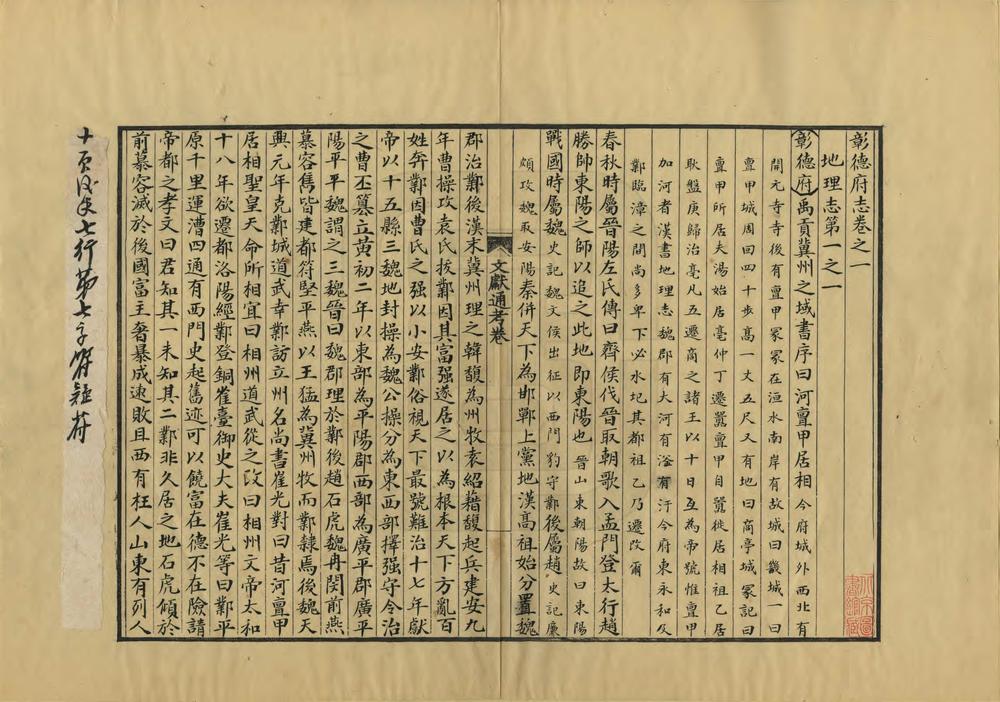 彰德府志卷之一
地理志第一之一
彰德府禹貢冀州之域書序曰河亶甲居相今府城外西北有
開元寺寺後有亶甲冢冢在洹水南岸有故城曰畿城一曰
亶甲城周囘四十步高一丈五尺又有地曰商亭城冢記曰
亶甲所居夫湯始居亳仲丁遷嚻亶甲自嚻徙居相祖乙居
耿盤庚歸治亳凡五遷商之諸王以十日互為帝號惟亶甲
加河者漢書地理志魏郡有大河有滏有汙今府東永和及
鄴臨漳之間尚多卑下必水圮其都祖乙乃遷改爾
春秋時屬晉陽左氏傳曰齊侯伐晉取朝歌入孟門登太行趙
勝帥東陽之師以追之此地即東陽也晉山東朝陽故曰東陽
戰國時屬魏史記魏文侯出征以西門豹守鄴後屬趙史記廉
頗攻魏取安陽秦併天下為邯鄲上黨地漢高祖始分置魏
文獻通考卷
郡治鄴後漢末冀州理之韓馥為州牧袁紹藉馥起兵建安九
年曹操攻袁氏拔鄴因其富强遂居之以為根本天下方亂百
姓奔鄴因曹氏之强以小安鄴俗視天下最號難治十七年獻
帝以十五縣三魏地封操為魏公操分為東西部擇强守令治
之曹丕簒立黃初二年以東部為平陽郡西部為廣平郡廣平
陽平平魏謂之三魏晉曰魏郡理於鄴後趙石虎魏冉閔前燕
慕容雋皆建都符堅平燕以王猛為冀州牧而鄴隸焉後魏天
興元年克鄴城道武幸鄴訪立州名尚書崔光對曰昔河亶甲
居相聖皇天命所相宜曰相州道武從之改曰相州文帝太和
十八年欲遷都洛陽經鄴登銅雀臺御史大夫崔光等曰鄴平
原千里運漕四通有西門史起舊迹可以饒富在德不在險請
帝都之孝文曰君知其一未知其二鄴非久居之地石虎傾於
前慕容滅於後國富主奢暴成速敗且西有枉人山東有列人